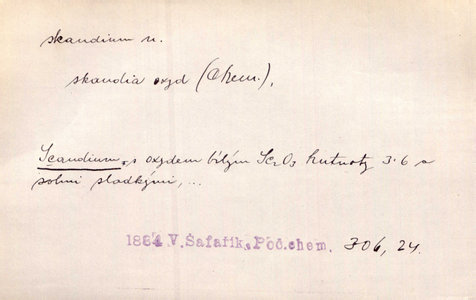 skandium n.
skandia oxyd (Chem.),
Scandium, s oxydem bílým Sc₂O₃ hutnoty 3·6 a
solmi sladkými, ...
1884 V. Šafařík, Poč. chem. 306, 24.